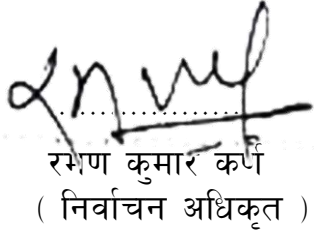 रमण कुमार कर्ण
( निर्वाचन अधिकृत )